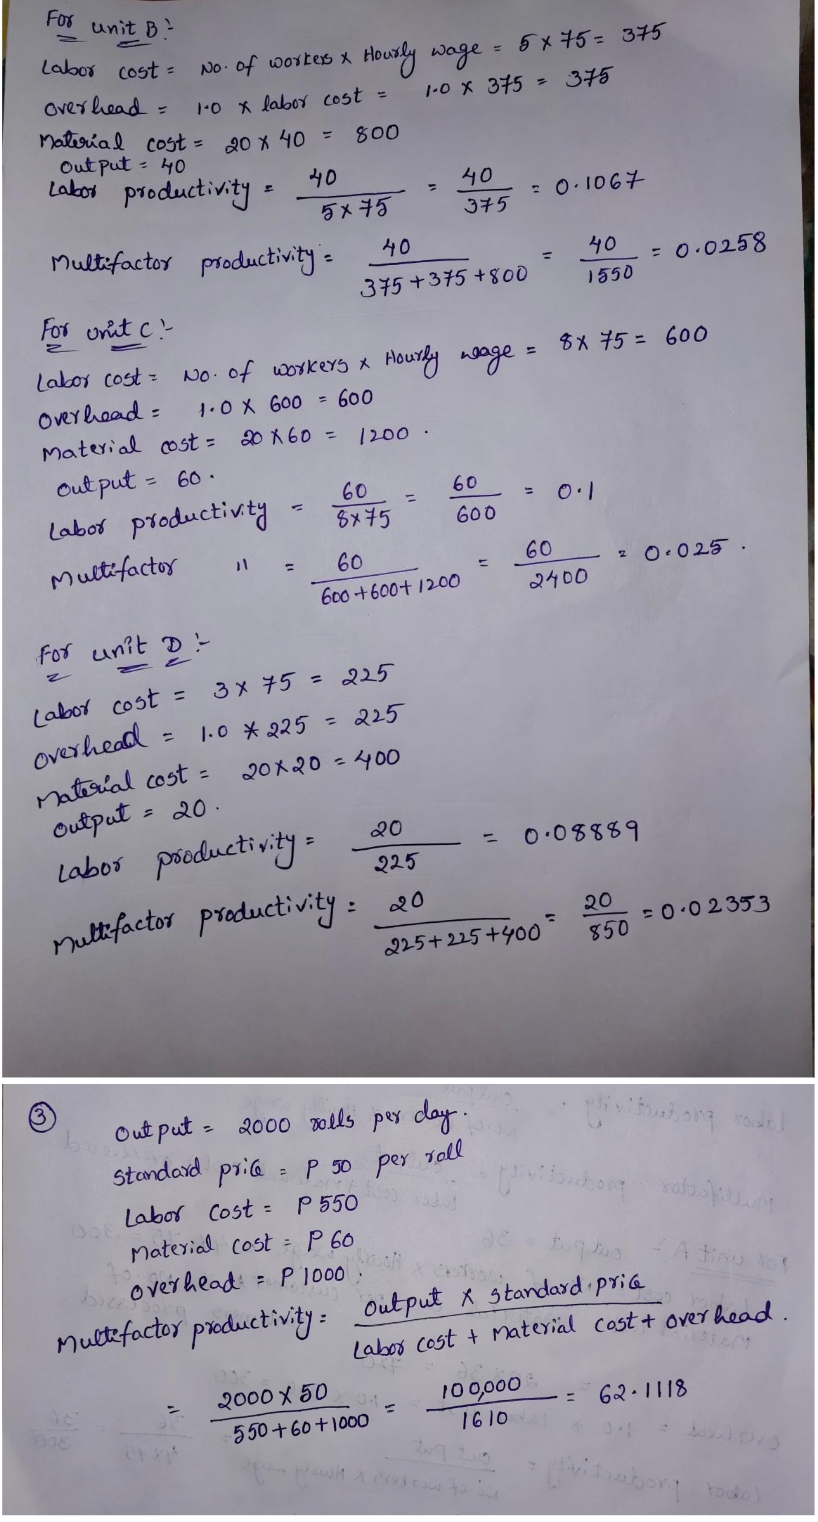 For unit B :-
Labor cost = No. of workers x Hourly wage = 5 x 75 = 375
overhead = 1.0 x labor cost = 1.0 x 375 = 375
Material cost = 20 x 40 = 800
output = 40
Labor productivity = 40 / 5x75 = 40 / 375 = 0.1067
Multifactor productivity = 40 / 375+375+800 = 40 / 1550 = 0.0258
For unit C :-
Labor cost = No. of workers x Hourly wage = 8x 75 = 600
overhead = 1.0 x 600 = 600
Material cost = 20 x 60 = 1200 .
output = 60 .
Labor productivity = 60 / 8x75 = 60 / 600 = 0.1
Multifactor " = 60 / 600+600+1200 = 60 / 2400 = 0.025 .
For unit D :-
Labor cost = 3 x 75 = 225
overhead = 1.0 * 225 = 225
Material cost = 20x20 = 400
output = 20 .
Labor productivity = 20 / 225 = 0.08889
Multifactor productivity = 20 / 225+225+400 = 20 / 850 = 0.02353
③ output = 2000 rolls per day .
Standard price = P 50 per roll
Labor cost = P 550
Material cost = P 60
overhead = P 1000 .
Multifactor productivity = output x standard price / Labor cost + Material cost + overhead .
= 2000 x 50 / 550+60+1000 = 100,000 / 1610 = 62.1118